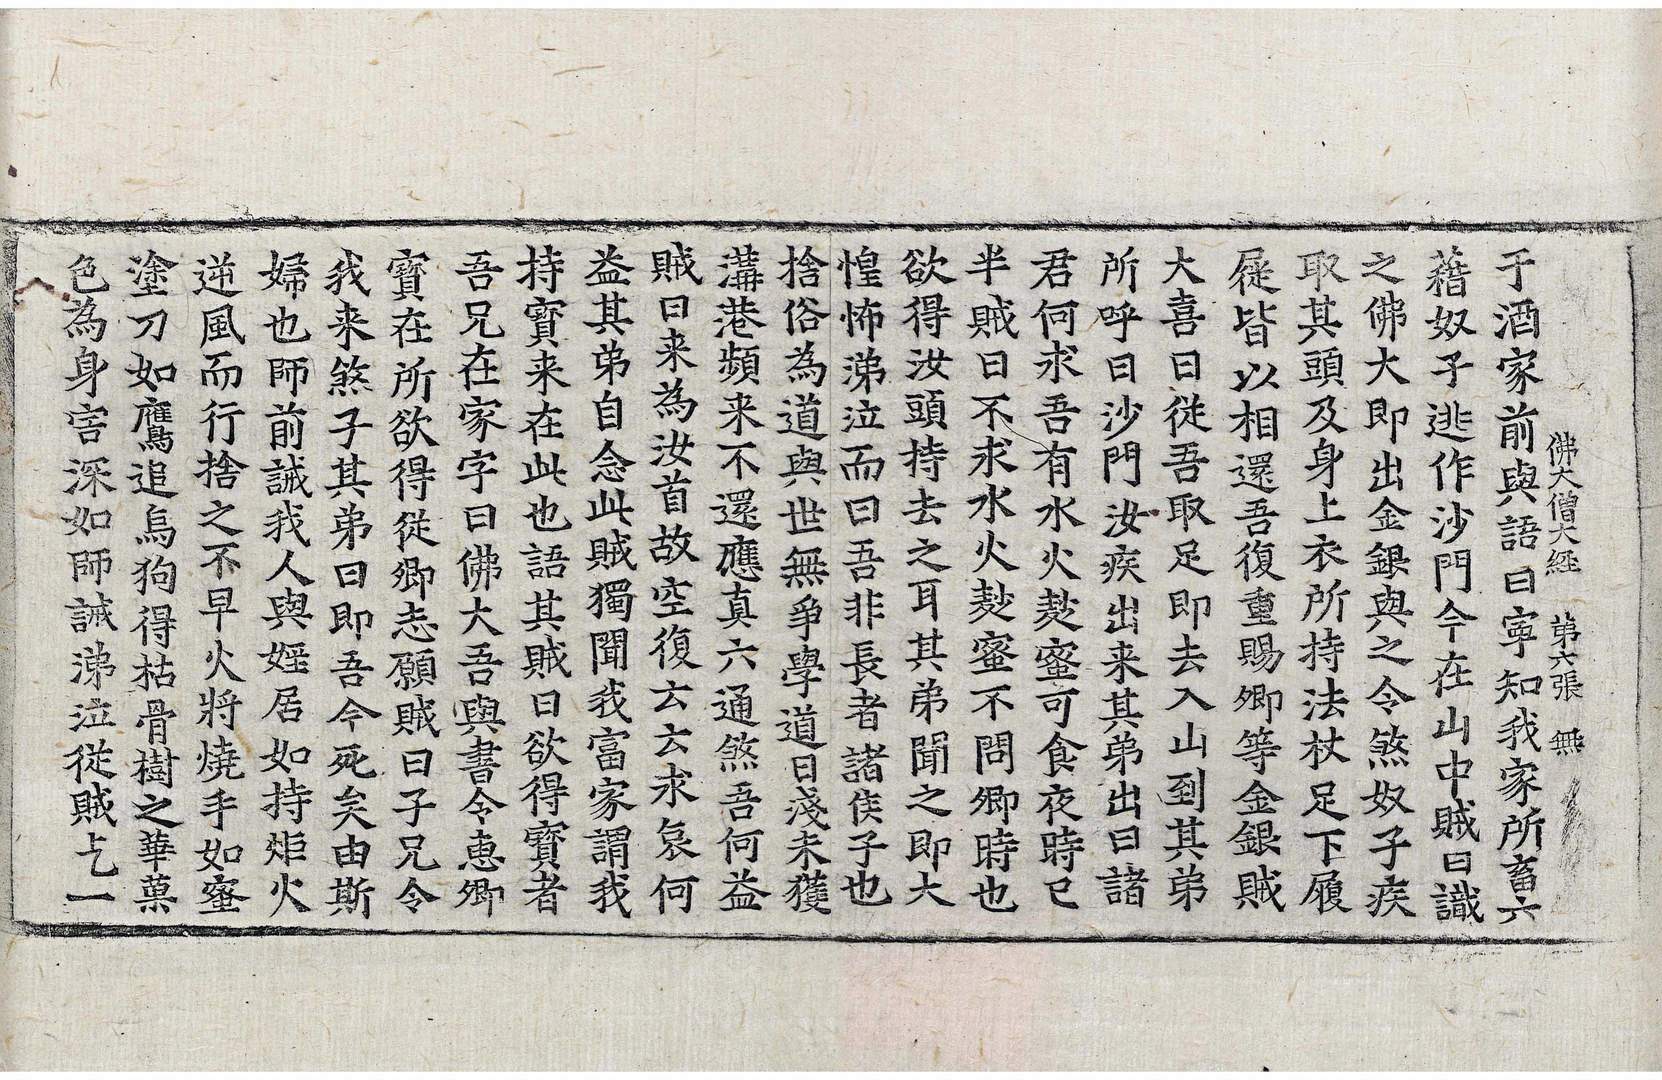 佛大僧大經　第六張　無
于酒家前與語曰寧知我家所畜六
藉奴子逃作沙門今在山中賊曰識
之佛大即出金銀與之令煞奴子疾
取其頭及身上衣所持法杖足下履
屣皆以相還吾復重賜卿等金銀賊
大喜曰從吾取足即去入山到其弟
所呼曰沙門汝疾出来其弟出曰諸
君何求吾有水火麨蜜可食夜時已
半賊曰不求水火麨蜜不問卿時也
欲得汝頭持去之耳其弟聞之即大
惶怖涕泣而曰吾非長者諸侯子也
捨俗為道與世無爭學道日淺未獲
溝港頻来不還應真六通煞吾何益
賊曰来為汝首故空復云云求哀何
益其弟自念此賊獨聞我富家謂我
持寶来在此也語其賊曰欲得寶者
吾兄在家字曰佛大吾與書令惠卿
寶在所欲得從卿志願賊曰子兄令
我来煞子其弟曰即吾今死矣由斯
婦也師前誡我人與婬居如持炬火
逆風而行捨之不早火將燒手如蜜
塗刀如鷹追烏狗得枯骨樹之華菓
色為身害深如師誡涕泣從賊乞一